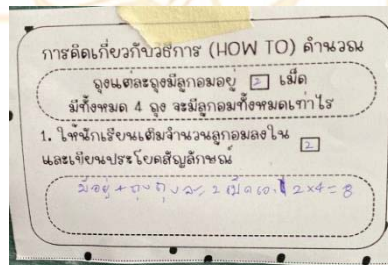 การคิดเกี่ยวกับวิธีการ (HOW TO) คำนวณ
ถุงแต่ละถุงมีลูกอมอยู่ 2 เม็ด
มีทั้งหมด 4 ถุง จะมีลูกอมทั้งหมดเท่าไร
1. ให้นักเรียนเติมจำนวนลูกอมลงใน 2
และเขียนประโยคสัญลักษณ์
มีอยู่ 4 ถุง ถุงละ 2 เม็ด 2×4=8